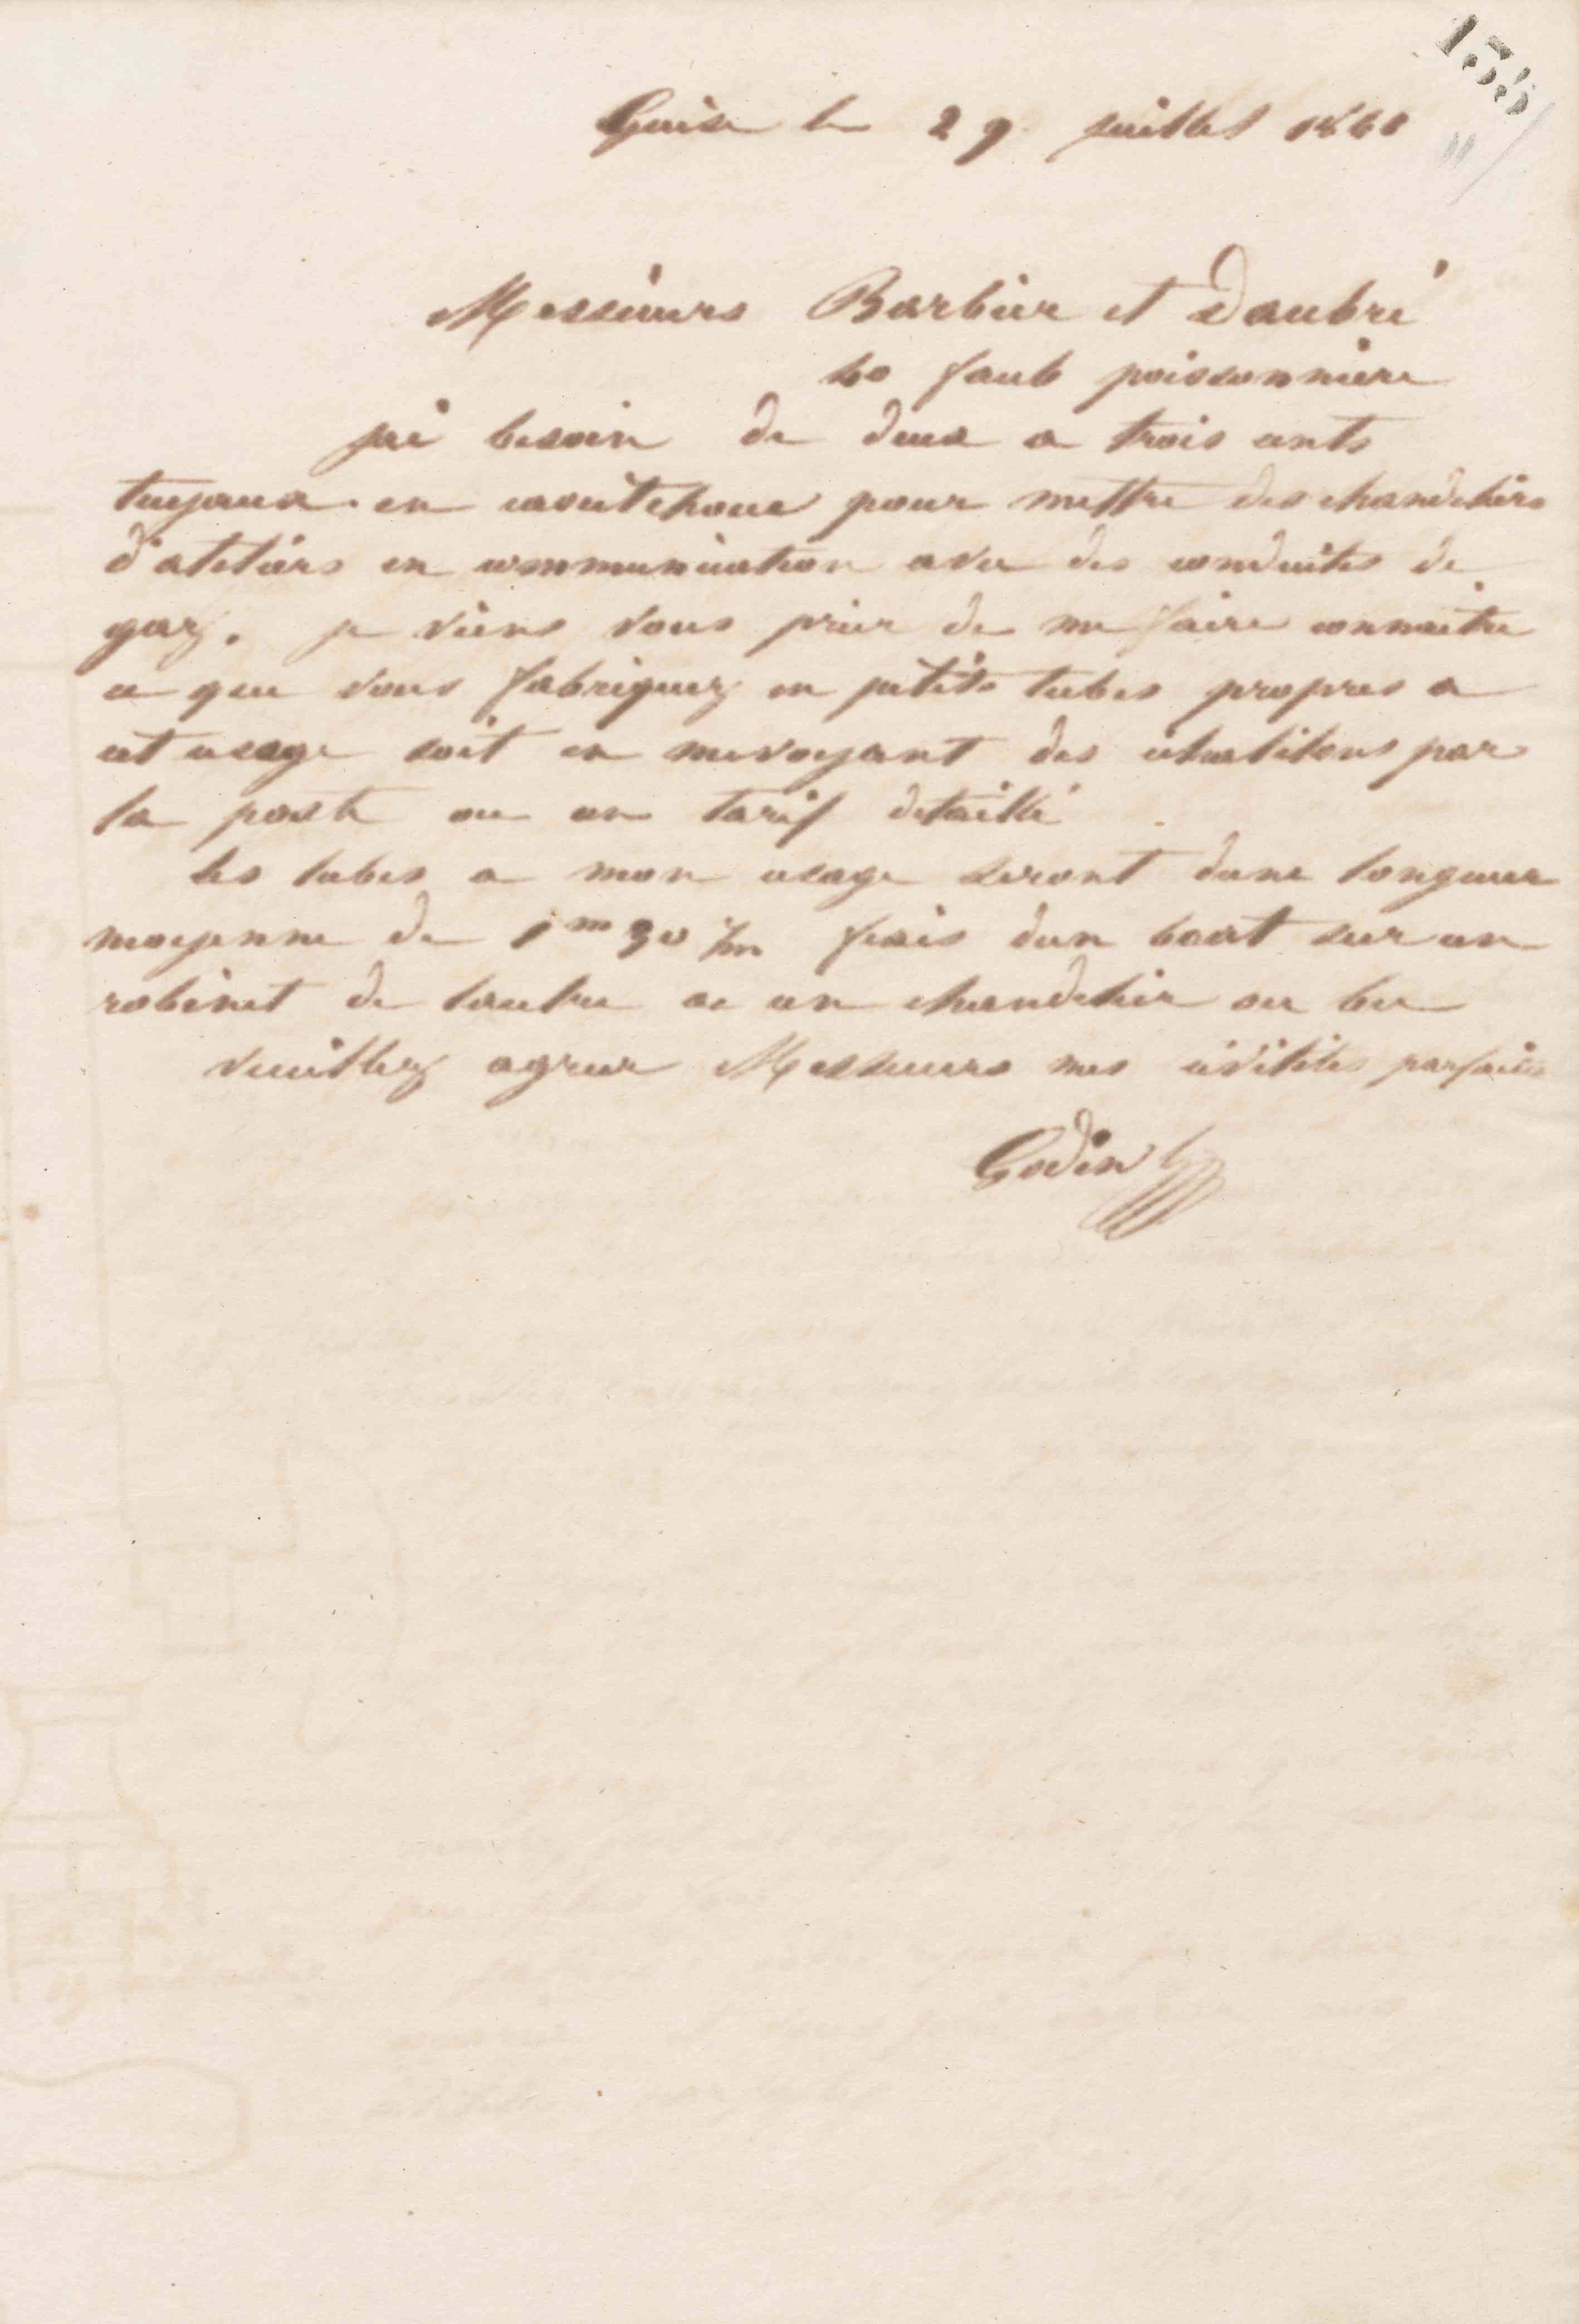 135
Guise le 29 juillet 1861
Messieurs Barbier et Daubré
60 faub poissonniere
jai besoin de deux a trois cents
tuyaux en caoutchouc pour mettre des chandeliers
d'ateliers en communication avec des conduites de
gaz. je viens vous prier de me faire connaitre
ce que vous fabriquez en petits tubes propres a
cet usage soit en menvoyant des echatilons par
la poste ou un tarif detaillé
les tubes a mon usage seront dune longueur
moyenne de 1m 30 c/m fixés dun bout sur un
robinet de lautre a un chandelier ou bec
veuillez agreer Messieurs mes civilités parfaites
Godin